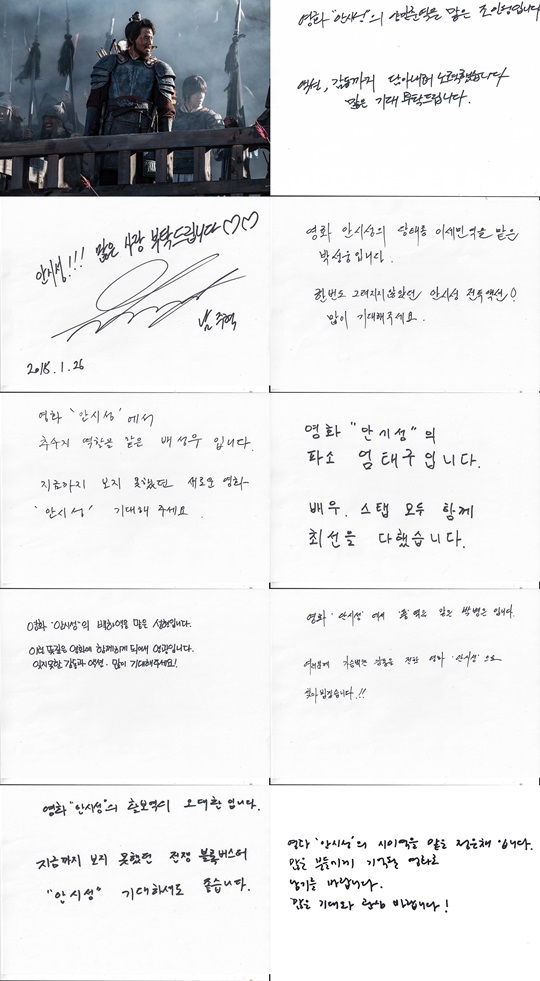 영화 "안시성"의 양만춘역을 맡은 조인성입니다
액션, 감동까지 담아내려 노력했습니다
많은 기대 부탁드립니다.
안시성!!! 많은 사랑 부탁드립니다♡♡
남주혁
2018.1.26
영화 안시성의 당태종 이세민역을 맡은
박성웅입니다.
한번도 그려지지않았던 안시성 전투액션!
많이 기대해주세요.
영화 '안시성'에서
추수지 역할을 맡은 배성우 입니다.
지금까지 보지 못했던 새로운 영화
'안시성' 기대해 주세요.
영화 "안시성"의
파소 엄태구입니다.
배우, 스탭 모두 함께
최선을 다했습니다.
영화 '안시성'의 백하역을 맡은 설현입니다.
이런 멋진 영화에 함께하게 되어서 영광입니다.
잊지못할 감동과 액션. 많이 기대해주세요!
영화 '안시성' 에서 '풍'역을 맡은 박병은 입니다.
여러분께 가슴벅찬 감동을 전할 영화 '안시성'으로
찾아 뵙겠습니다.!!
영화 "안시성"의 활보역의 오대환 입니다.
지금까지 보지 못했던 전쟁 블록버스터
"안시성" 기대하셔도 좋습니다.
영화 '안시성'의 시미역을 맡은 정은채 입니다.
많은 분들에게 기억될 영화로
남기를 바랍니다.
많은 기대와 관심 바랍니다!